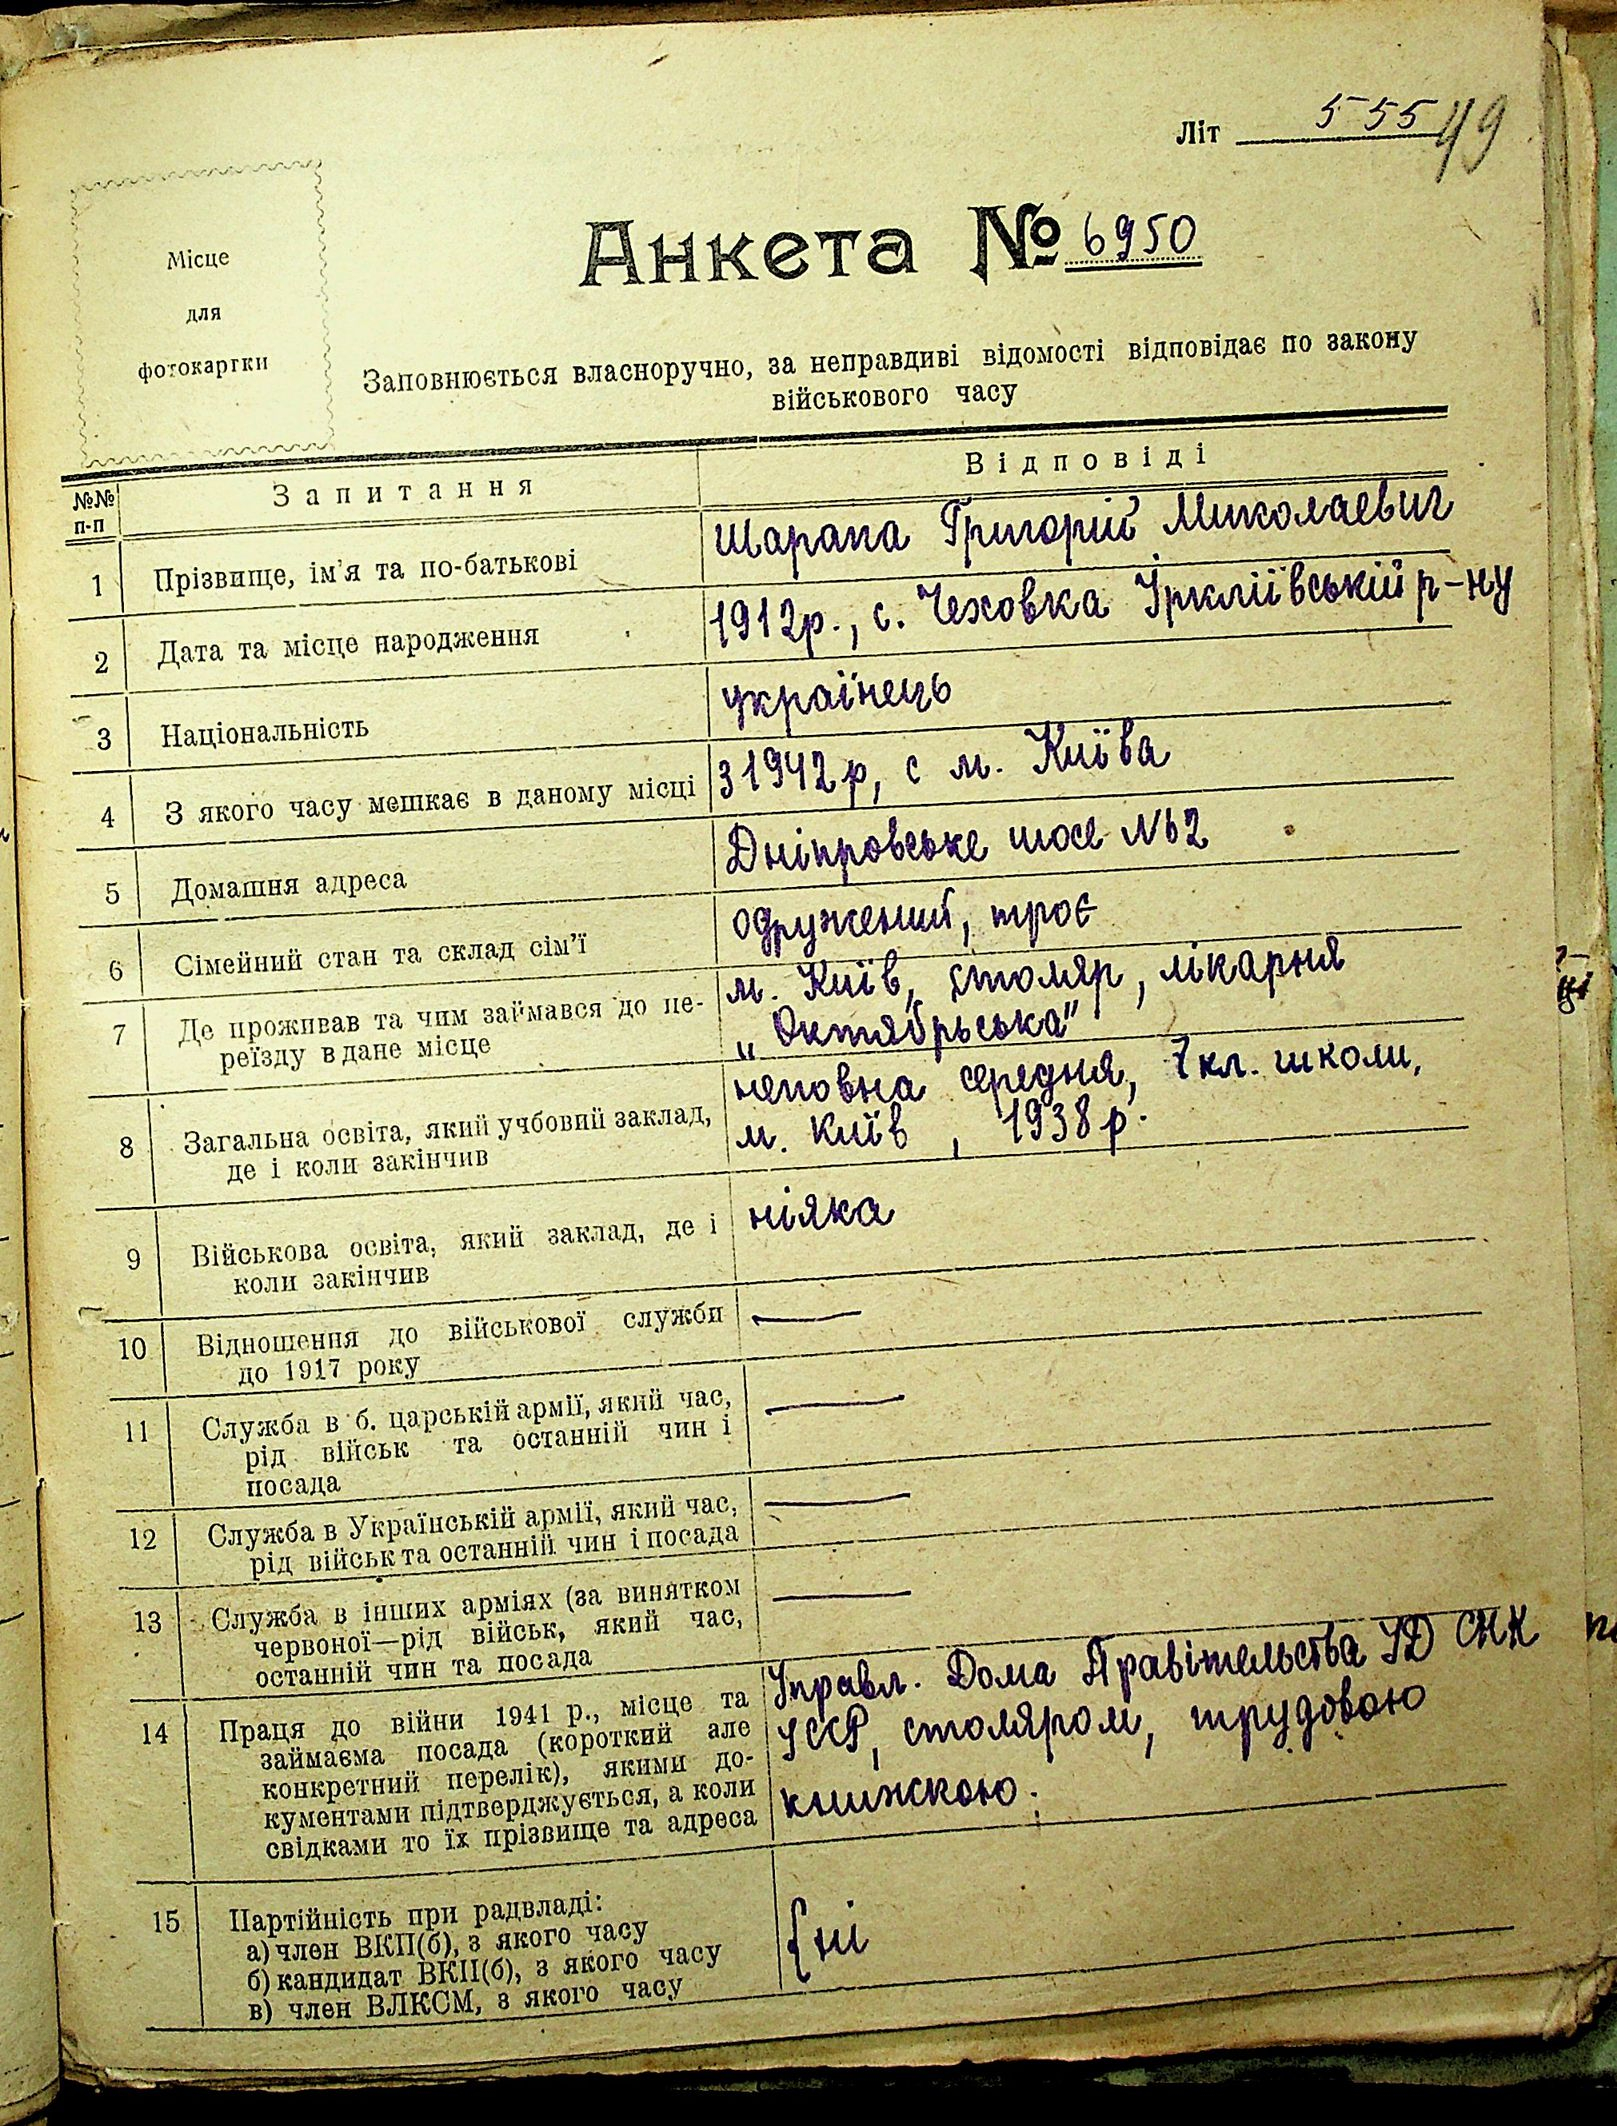 Літ 555
49
Місце
для
фотокартки
Анкета № 6950
Заповнюється власноручно, за неправдиві відомості відповідає по закону
військового часу
№№ п-п
Запитання
Відповіді
1
Прізвище, ім'я та по-батькові
Шарапа Григорій Миколаевич
2
Дата та місце народження
1912р., с. Чеховка Іркліївській р-ну
3
Національність
українець
4
З якого часу мешкає в даному місці
з 1942р, с м. Київа
5
Домашня адреса
Дніпровське шосе №2
6
Сімейний стан та склад сім'ї
одружений, троє
7
Де проживав та чим займався до пе-
реїзду в дане місце
м. Київ, столяр, лікарня
„Октябрьська"
8
Загальна освіта, який учбовий заклад,
де і коли закінчив
неповна середня, 7 кл. школи,
м. Київ, 1938р.
9
Військова освіта, який заклад, де і
коли закінчив
ніяка
10
Відношення до військової служби
до 1917 року
—
11
Служба в б. царській армії, який час,
рід військ та останній чин і
посада
—
12
Служба в Українській армії, який час,
рід військ та останній чин і посада
—
13
Служба в інших арміях (за винятком
червоної—рід військ, який час,
останній чин та посада
—
14
Праця до війни 1941 р., місце та
займаєма посада (короткий але
конкретний перелік), якими до-
кументами підтверджується, а коли
свідками то їх прізвище та адреса
Управл. Дома Правітельства УД СНК
УССР, столяром, трудовою
книжкою.
15
Партійність при радвладі:
а) член ВКП(б), з якого часу
б) кандидат ВКП(б), з якого часу
в) член ВЛКСМ, з якого часу
{ні